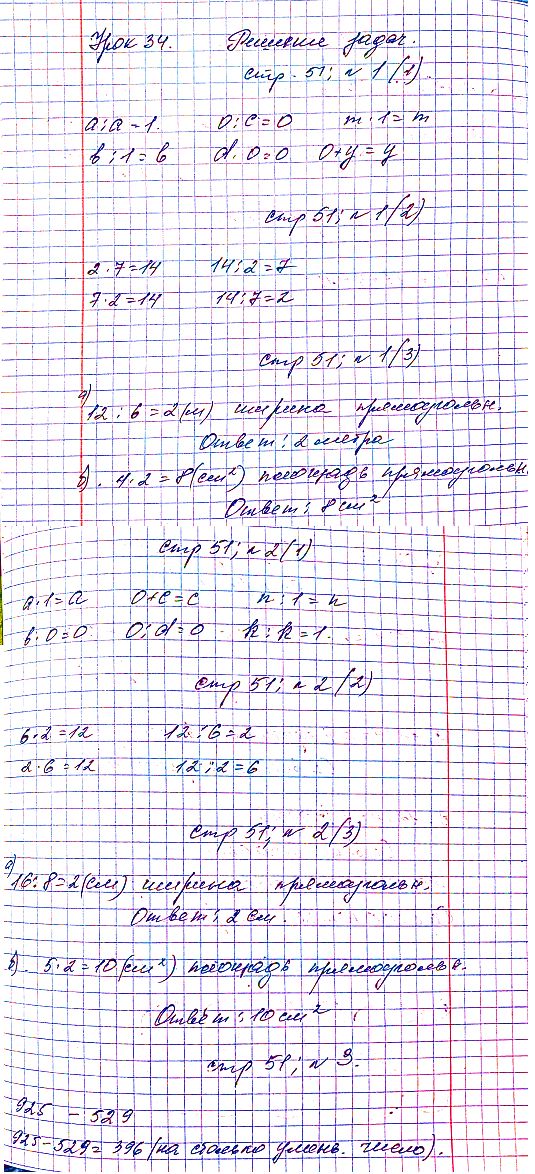 Урок 34. Решение задач.
стр. 51; № 1 (1).
a : a = 1. 0 : c = 0 m · 1 = m
b : 1 = b d · 0 = 0 0 + y = y
стр 51; № 1 (2)
2 · 7 = 14 14 : 2 = 7
7 · 2 = 14 14 : 7 = 2
стр 51; № 1 (3)
а)
12 : 6 = 2 (м) ширина прямоугольн.
Ответ: 2 метра
б). 4 · 2 = 8 (см²) площадь прямоугольн.
Ответ: 8 см²
стр 51; № 2 (1)
a · 1 = a 0 + c = c n : 1 = n
b · 0 = 0 0 : d = 0 k : k = 1.
стр 51; № 2 (2)
6 · 2 = 12 12 : 6 = 2
2 · 6 = 12 12 : 2 = 6
стр 51; № 2 (3)
а)
16 : 8 = 2 (см) ширина прямоугольн.
Ответ: 2 см.
б). 5 · 2 = 10 (см²) площадь прямоугольн.
Ответ: 10 см²
стр 51; № 3.
925 - 529
925 - 529 = 396 (на столько умень. число).